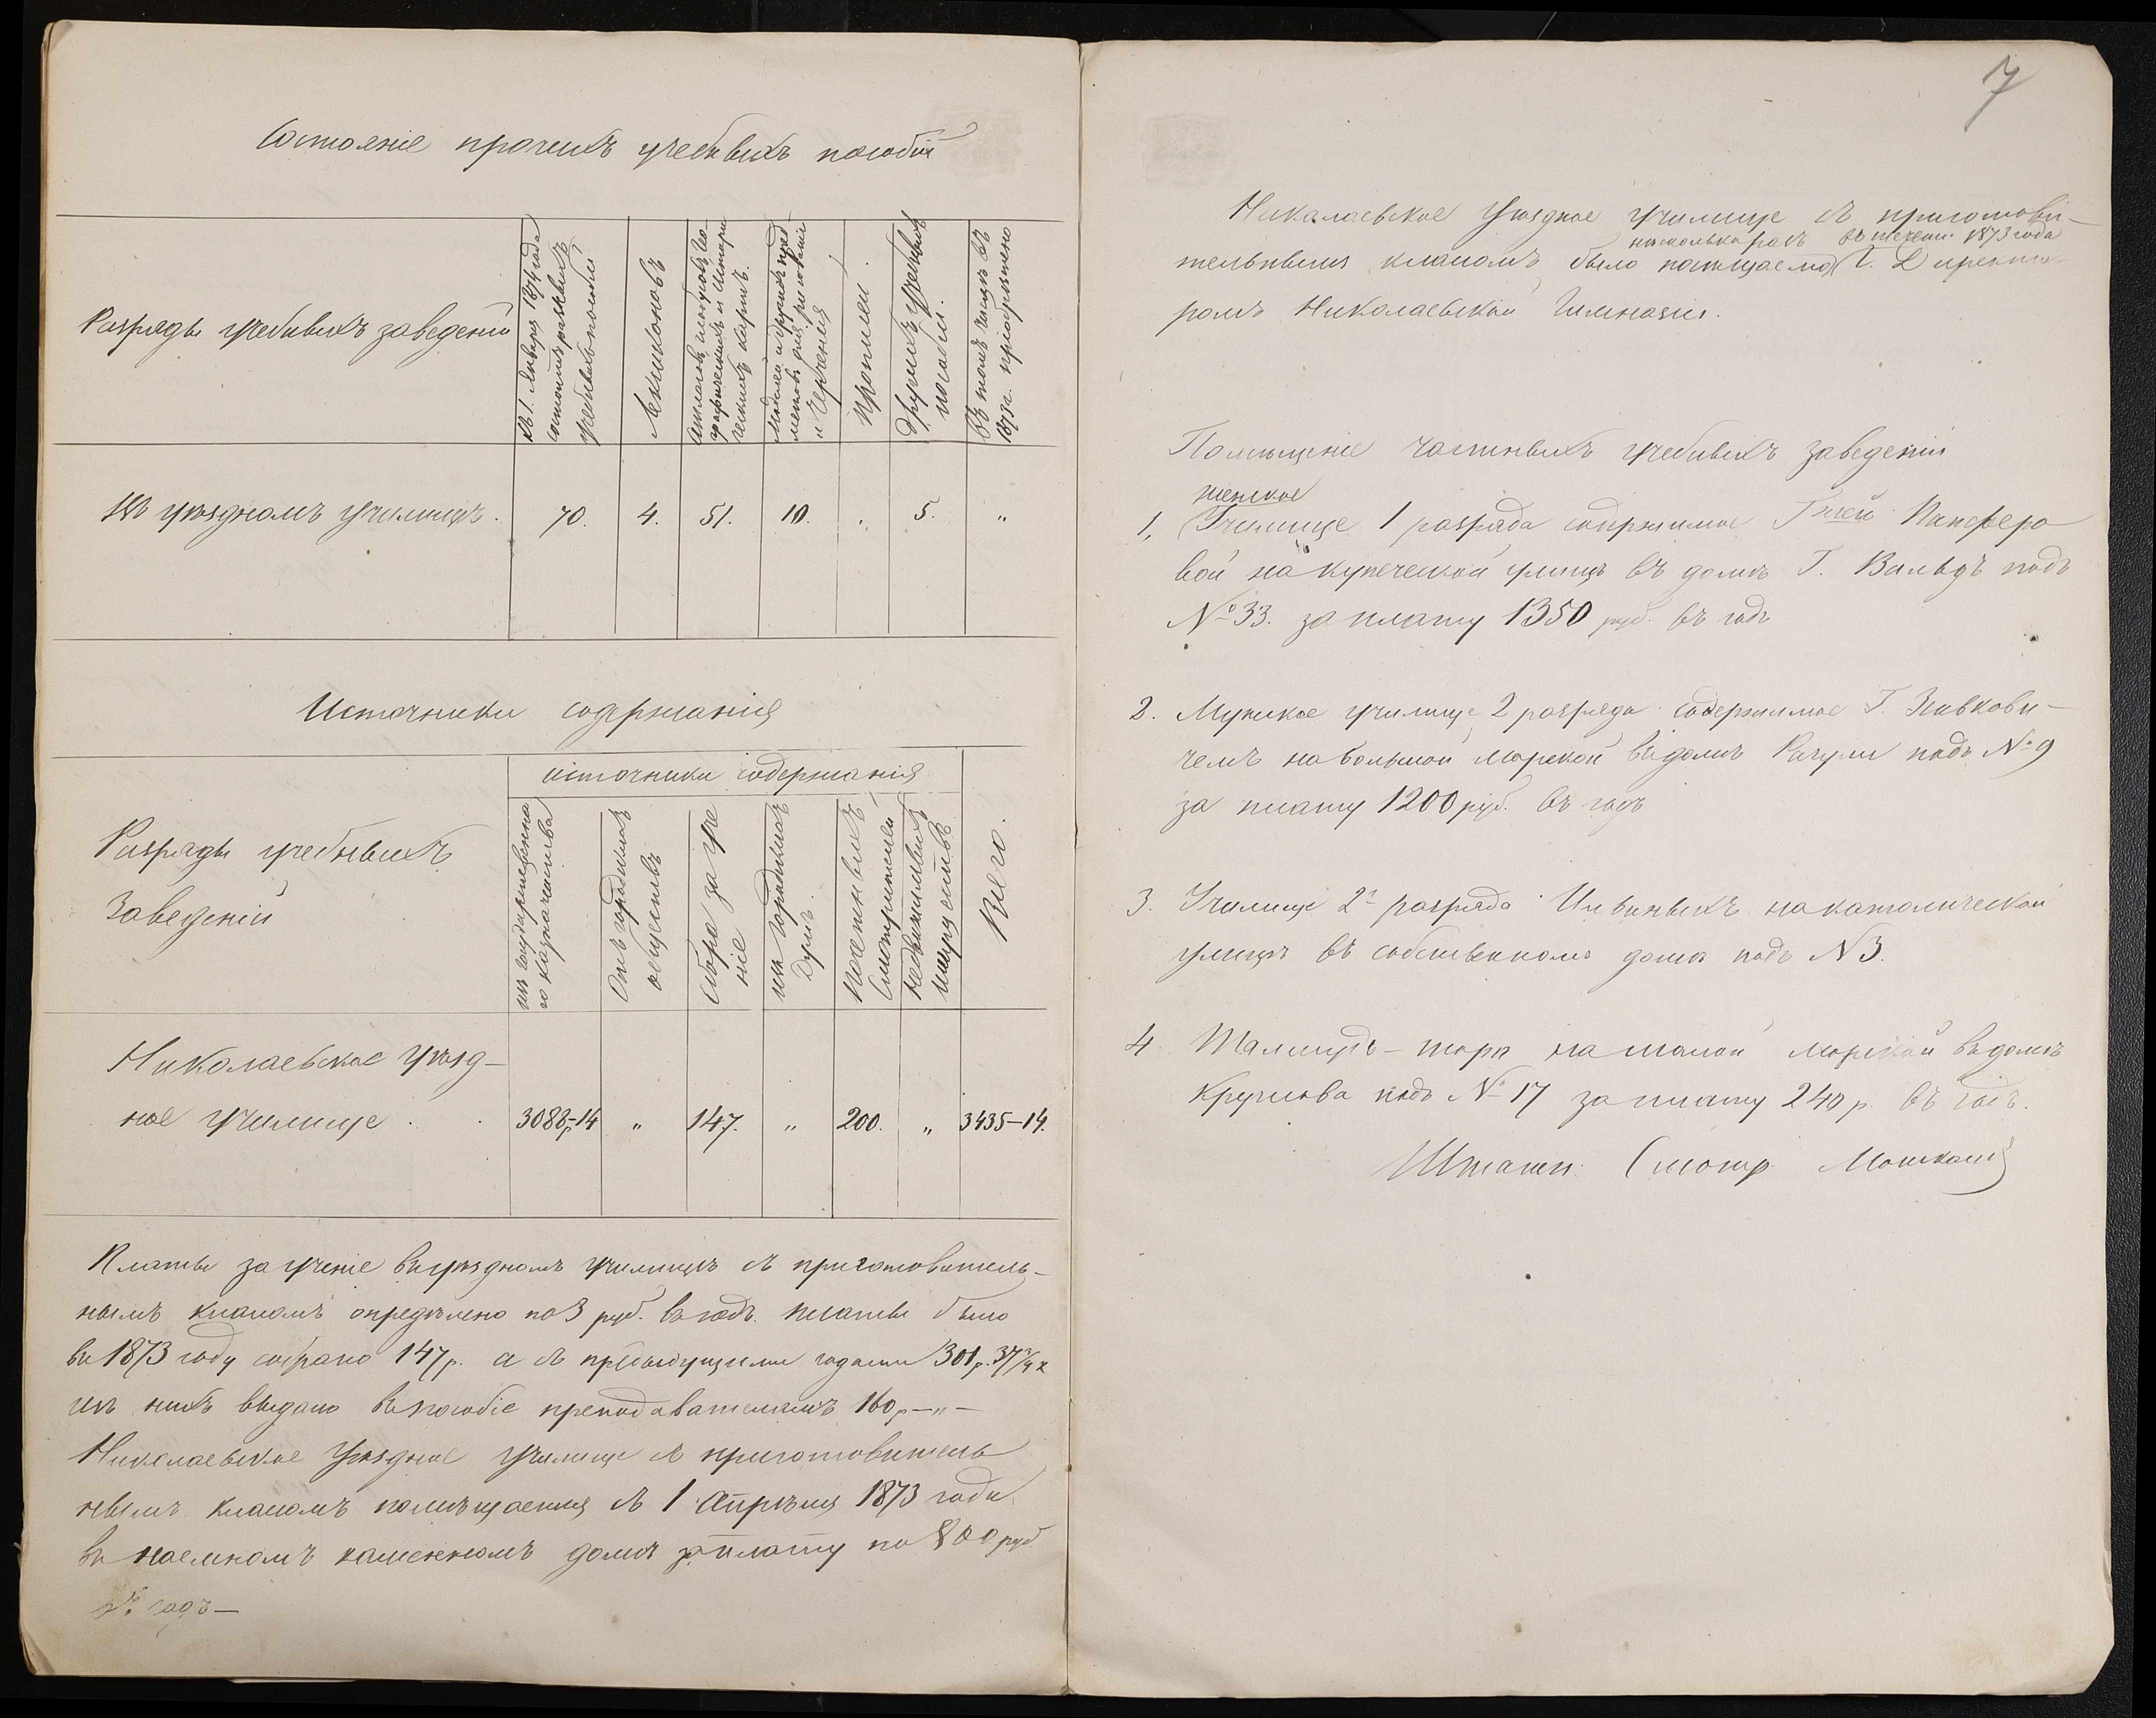 Состояніе прочихъ учебныхъ пособій
Разряды учебныхъ заведеній
Къ 1. Января 1874 года
состоитъ разныхъ
учебныхъ пособій
Лексиконовъ
Атласовъ, глобусовъ, гео
графическихъ и истори
ческихъ картъ.
Моделей и другихъ пред
метовъ для рисованія
и черченія
Прописи.
Другихъ учебныхъ
пособій.
Въ томъ числѣ въ
1873 г. пріобрѣтено
Въ уѣздномъ училищѣ.
70. 4. 51. 10. . 5. "
Источники содержанія
Разряды учебныхъ
Заведеній
источники содержанія
изъ государственна
го казначейства
Отъ городскихъ
обществъ
Сбора за уче
ніе
изъ городскихъ
думъ.
Почетныхъ
Смотрителей
недвижимыхъ
имуществъ
Всего.
Николаевское Уѣзд-
ное Училище . . 3088р-14 " 147. " 200. " 3435-14.
Платы за ученіе въ уѣздномъ училищѣ съ приготовитель-
нымъ классомъ опредѣлено по 3 руб. въ годъ. платы было
въ 1873 году собрано 147 р. а съ предыдущими годами 301 р. 37 3/4 к
изъ нихъ выдано въ пособіе преподавателямъ 160 р-"-
Николаевское Уѣздное Училище съ приготовитель
нымъ классомъ помѣщается съ 1 Апрѣля 1873 года
въ наемномъ каменномъ домѣ за плату по 800 руб
въ годъ-
7
Николаевское Уѣздное училище съ приготови-
нѣсколько разъ въ теченіи 1873 года
тельнымъ классомъ было посѣщаемо Г. Директо-
ромъ Николаевской Гимназіи.
Помѣщеніе частныхъ учебныхъ заведеній
женское
1, Училище 1 разряда содержимое Г-жей Панферо
вой на купеческой улицѣ въ домѣ Г. Вальдъ подъ
№ 33. за плату 1350 руб. въ годъ
2. Мужское училище 2 разряда содержимое Г. Зивкови-
чемъ на большой морской въ домѣ подъ № 9
за плату 1200 руб. въ годъ
3. Училище 2го разряда Ильиныхъ на католической
улицѣ въ собственномъ домѣ подъ N 3.
4. Талмудъ-тора на малой морской въ домѣ
подъ № 17 за плату 240 р. въ годъ.
Штатн. Смотр.